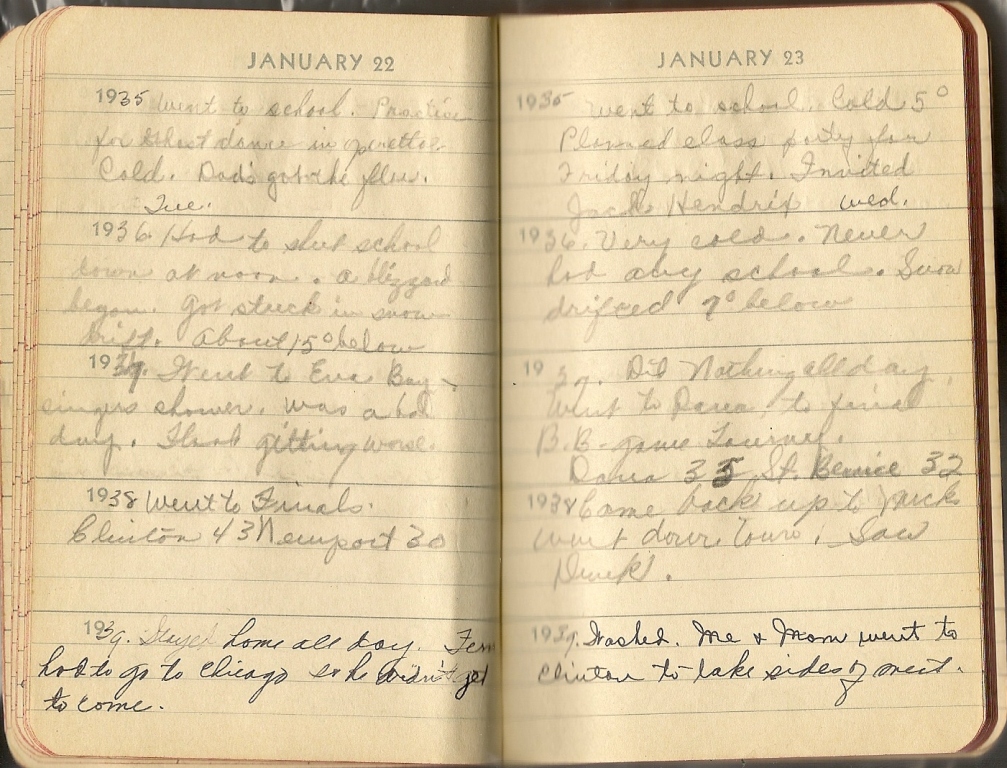 JANUARY 22
1935 Went to school. Practice
for Ghost dance in operetta.
Cold. Dad's got the flu.
Tue.
1936. Had to shut school
down at noon. a blizzard
began. Got stuck in snow
drift. About 15° below
1937. Went to Eva Bay-
singers shower. was a bad
day. Flood gitting worse.
1938 Went to Finals.
Clinton 43 Newport 30
1939. Stayed home all day. Fern
had to go to Chicago so he didn't get
to come.
JANUARY 23
1935 Went to school. Cold 5°
Planned class party for
Friday night. Invited
Jack Hendrix wed.
1936. Very cold. Never
had any school. Snow
drifted 7° below
1937. Did Nothing all day.
Went to Dana to final
B.B. game Tourney.
Dana 35 St. Bernice 32
1938 Came back up to
went down town. Saw
1939. Washed. Me & Mom went to
Clinton to take sides of meat.